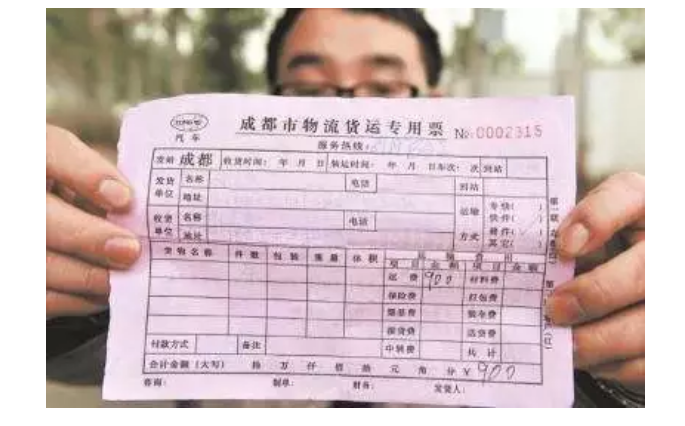 成都市物流货运专用票 No 0002315
汽车
服务热线:
发站 成都 收货时间: 年 月 日 装运时间: 年 月 日 车次: 次 到站
发货单位 名称 电话 到站
地址 运输方式 专快( )
快件( )
收货单位 名称 电话
地址 其它( )
货物名称 件数 包装 重量 体积 项目 金额 项目 金额
运费 900 材料费
保险费
装车费
接货费 送货费
付款方式 备注 中转费 共计
合计金额(大写) 拾 万 仟 佰 拾 元 角 分 ¥ 900
制单: 财务: 发货人: